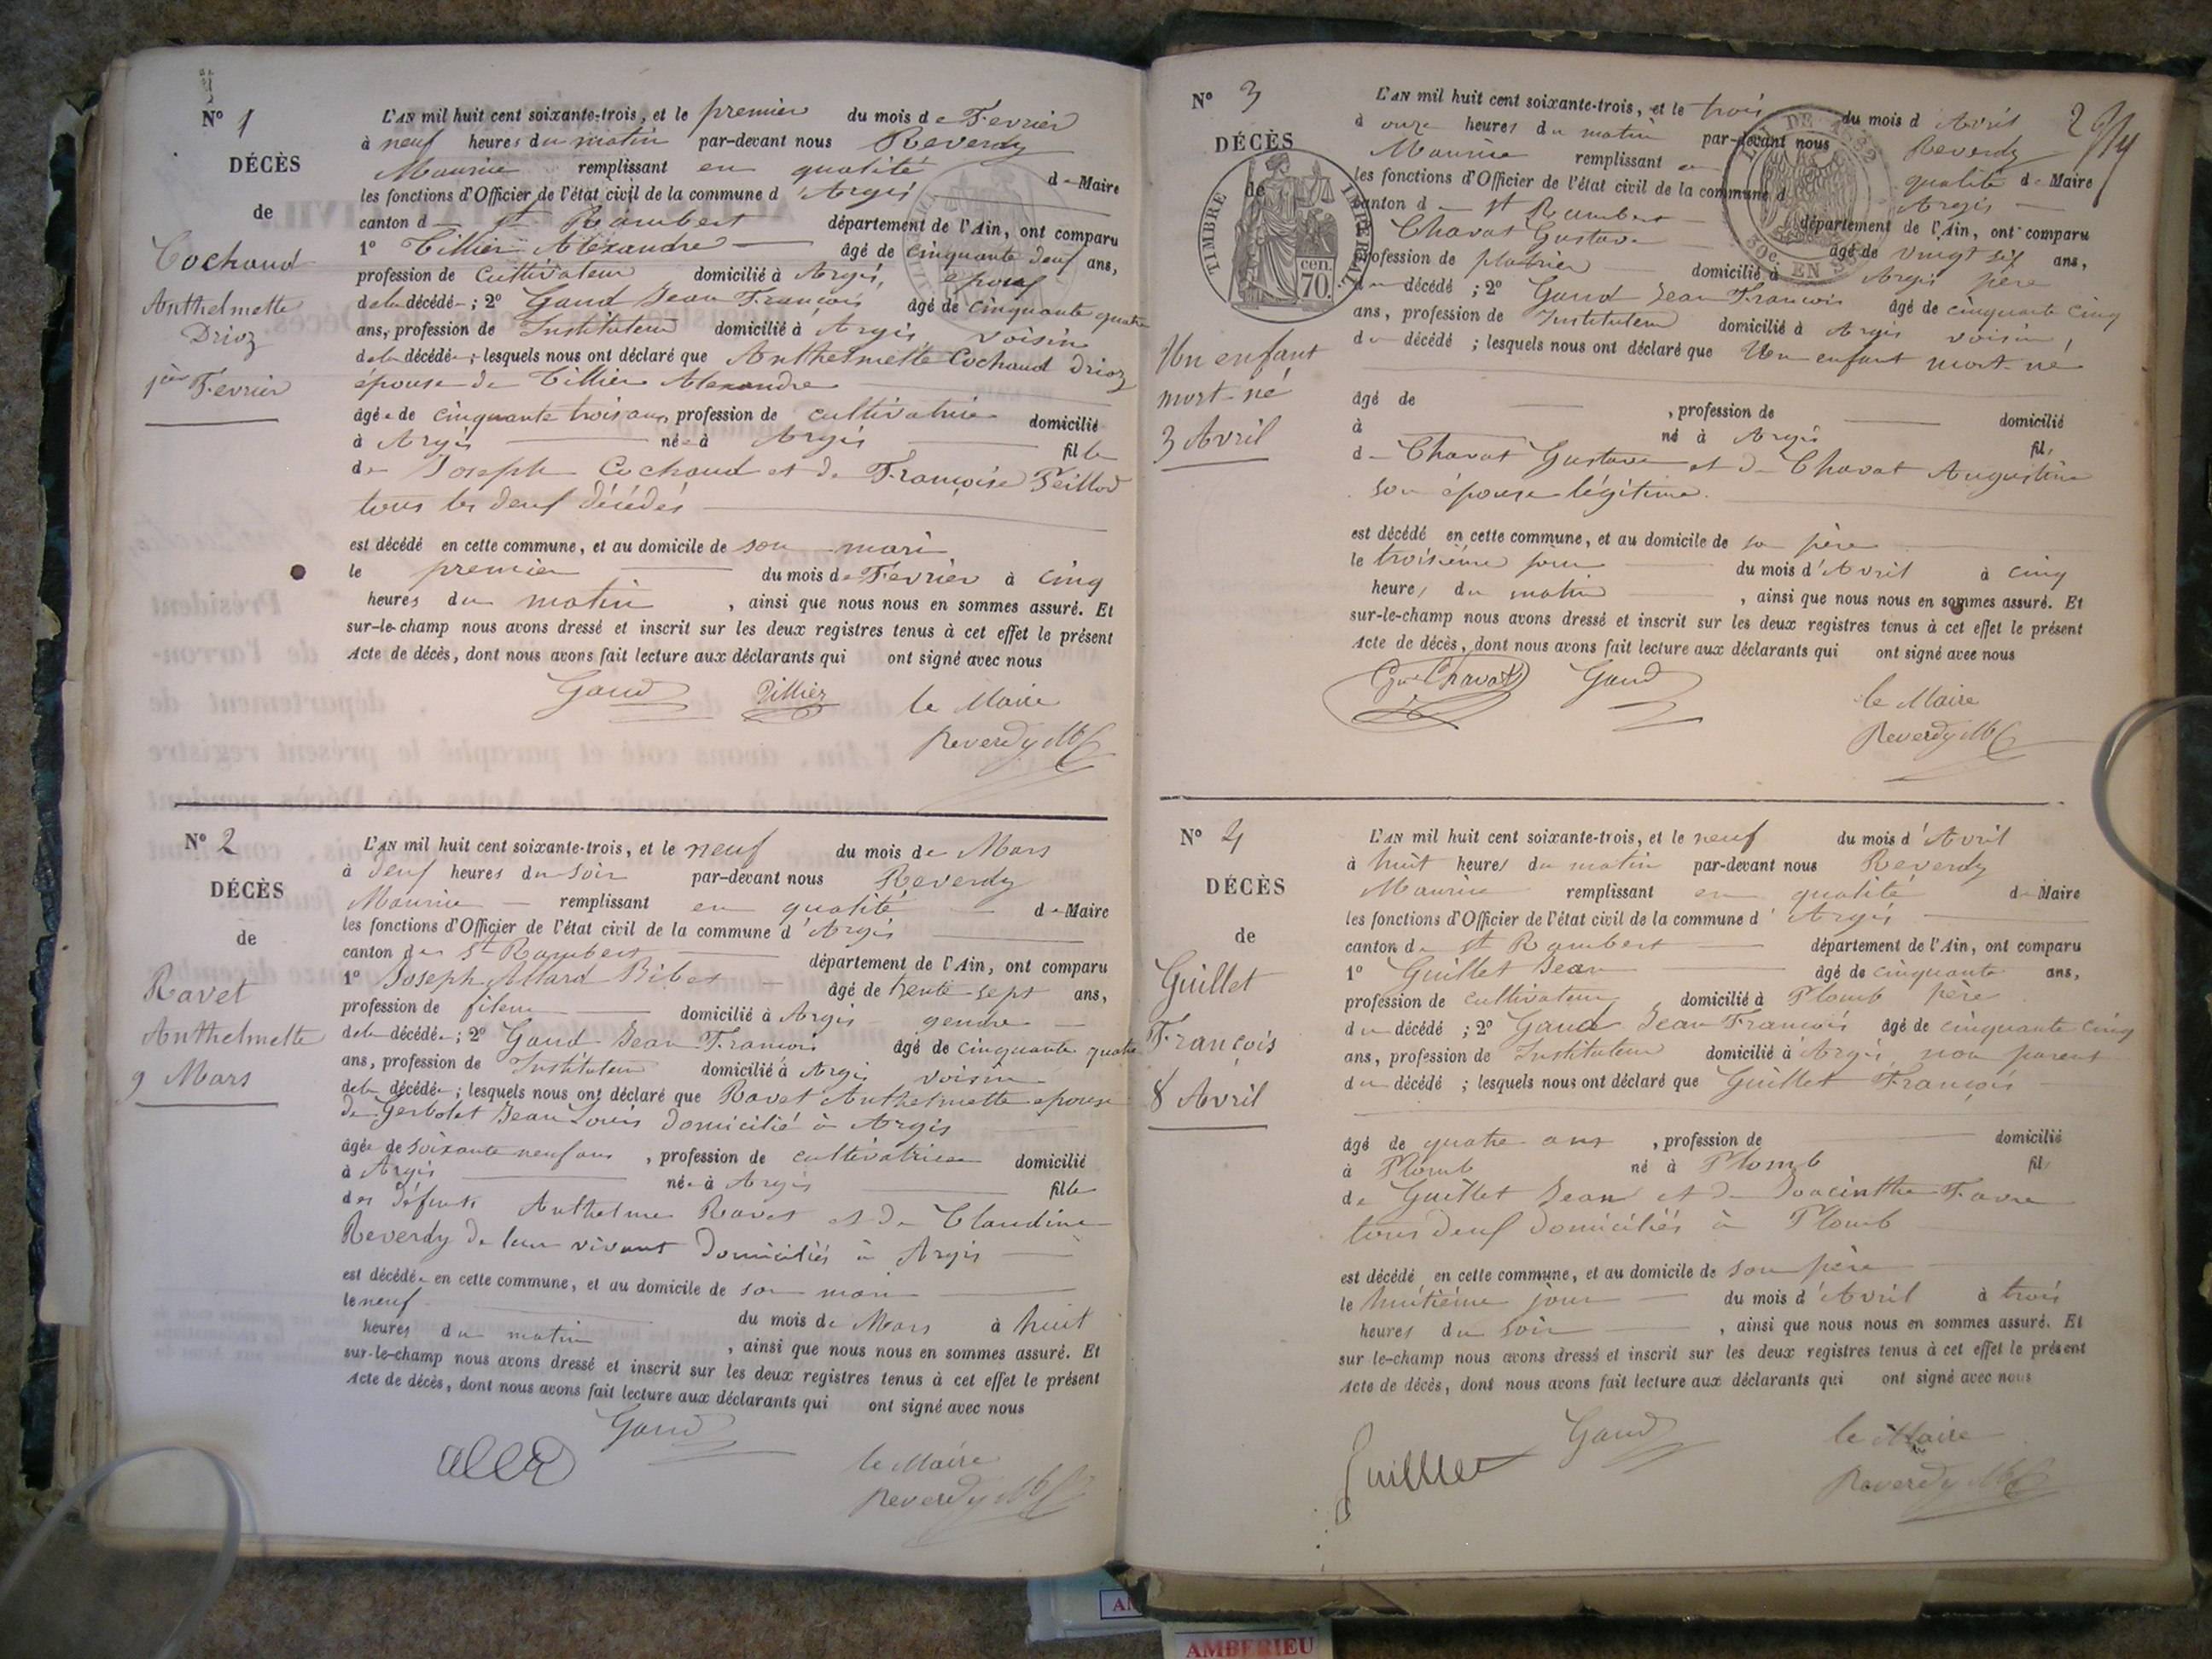 N° 1
DÉCÈS
de
Cochoud
Anthelmette
Drioz
1er Fevrier
L'AN mil huit cent soixante-trois, et le premier du mois de Fevrier
à neuf heures du matin par-devant nous Reverdy
Maurice remplissant en qualité de Maire
les fonctions d'Officier de l'état civil de la commune d'Argis
canton de St Rambert département de l'Ain, ont comparu
1° Tillier Alexandre âgé de cinquante deux ans,
profession de cultivateur domicilié à Argis, époux
de la décédée ; 2° Gaud Jean François âgé de cinquante quatre
ans, profession de Instituteur domicilié à Argis voisin
de la décédée ; lesquels nous ont déclaré que Anthelmette Cochoud Drioz
épouse de Tillier Alexandre
âgée de cinquante trois ans, profession de cultivatrice domicilié
à Argis née à Argis fille
de Joseph Cochoud et de Françoise Teillod
tous les deux décédés
est décédé en cette commune, et au domicile de son mari
le premier du mois de Fevrier à cinq
heures du matin , ainsi que nous nous en sommes assuré. Et
sur-le-champ nous avons dressé et inscrit sur les deux registres tenus à cet effet le présent
Acte de décès, dont nous avons fait lecture aux déclarants qui ont signé avec nous
Gaud Tillier le Maire
Reverdy
N° 2
DÉCÈS
de
Ravet
Anthelmette
9 Mars
L'AN mil huit cent soixante-trois, et le neuf du mois de Mars
à deux heures du soir par-devant nous Reverdy
Maurice remplissant en qualité de Maire
les fonctions d'Officier de l'état civil de la commune d'Argis
canton de St Rambert département de l'Ain, ont comparu
1° Joseph Allard Bibet âgé de trente sept ans,
profession de fileur domicilié à Argis gendre
de la décédée ; 2° Gaud Jean François âgé de cinquante quatre
ans, profession de Instituteur domicilié à Argis voisin
de la décédée ; lesquels nous ont déclaré que Ravet Anthelmette epouse
de Gerbolet Jean Louis domicilié à Argis
âgée de soixante neuf ans , profession de cultivatrice domicilié
à Argis née à Argis fille
des défunts Anthelme Ravet et de Claudine
Reverdy de leur vivant domiciliés à Argis
est décédée en cette commune, et au domicile de son mari
le neuf du mois de Mars à huit
heures du matin , ainsi que nous nous en sommes assuré. Et
sur-le-champ nous avons dressé et inscrit sur les deux registres tenus à cet effet le présent
Acte de décès, dont nous avons fait lecture aux déclarants qui ont signé avec nous
Gaud
le Maire
Reverdy
N° 3
DÉCÈS
de
TIMBRE IMPÉRIAL
70 cen.
Un enfant
mort-né
3 Avril
L'AN mil huit cent soixante-trois, et le trois du mois d'Avril
à onze heures du matin par-devant nous Reverdy
Maurice remplissant en qualité de Maire
les fonctions d'Officier de l'état civil de la commune d'Argis
canton de St Rambert département de l'Ain, ont comparu
Chavat Gustave âgé de vingt six ans,
profession de platrier domicilié à Argis père
du décédé ; 2° Gaud Jean François âgé de cinquante cinq
ans, profession de Instituteur domicilié à Argis voisin,
du décédé ; lesquels nous ont déclaré que Un enfant mort-né
âgé de , profession de domicilié
à né à Argis fils
de Chavat Gustave et de Chavat Augustine
son épouse légitime.
est décédé en cette commune, et au domicile de son père
le troisième jour du mois d'Avril à cinq
heures du matin , ainsi que nous nous en sommes assuré. Et
sur-le-champ nous avons dressé et inscrit sur les deux registres tenus à cet effet le présent
Acte de décès, dont nous avons fait lecture aux déclarants qui ont signé avec nous
Gve Chavat Gaud
le Maire
Reverdy
N° 4
DÉCÈS
de
Guillet
François
8 Avril
L'AN mil huit cent soixante-trois, et le neuf du mois d'Avril
à huit heures du matin par-devant nous Reverdy
Maurice remplissant en qualité de Maire
les fonctions d'Officier de l'état civil de la commune d'Argis
canton de St Rambert département de l'Ain, ont comparu
1° Guillet Jean âgé de cinquante ans,
profession de cultivateur domicilié à Plomb père
du décédé ; 2° Gaud Jean François âgé de cinquante cinq
ans, profession de Instituteur domicilié à Argis, non parent
du décédé ; lesquels nous ont déclaré que Guillet François
âgé de quatre ans , profession de domicilié
à Plomb né à Plomb fils
de Guillet Jean et de Joacinthe Favre
tous deux domiciliés à Plomb
est décédé en cette commune, et au domicile de son père
le huitième jour du mois d'Avril à trois
heures du soir , ainsi que nous nous en sommes assuré. Et
sur le-champ nous avons dressé et inscrit sur les deux registres tenus à cet effet le présent
Acte de décès, dont nous avons fait lecture aux déclarants qui ont signé avec nous
Guilllet Gaud le Maire
Reverdy
AMBERIEU